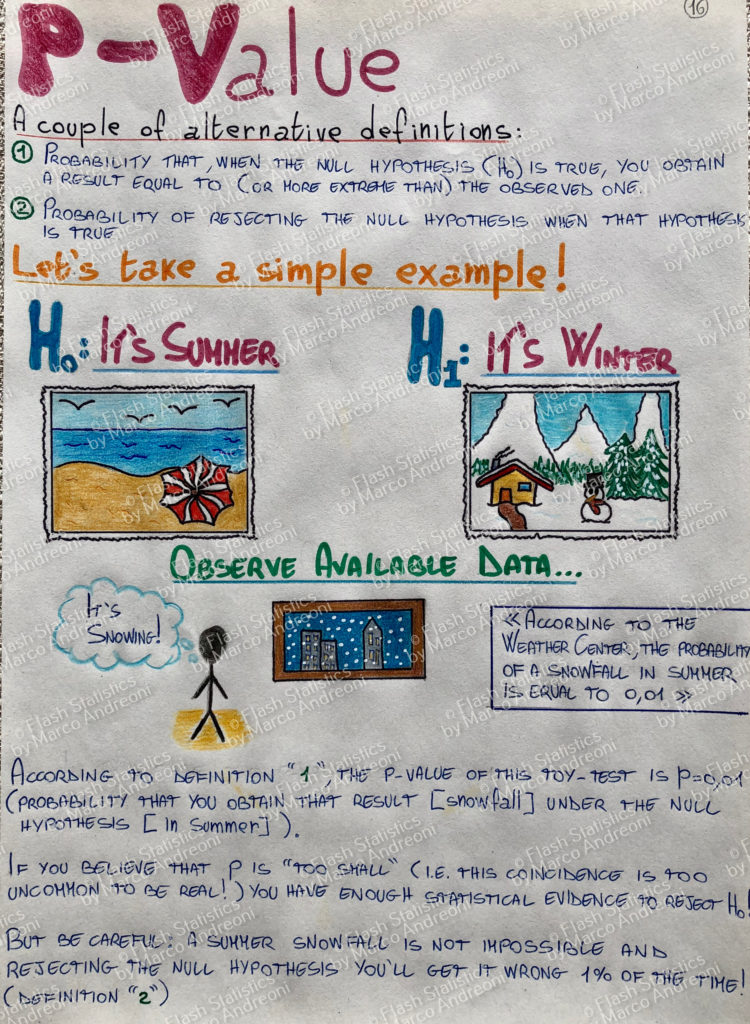 16
P-Value
A couple of alternative definitions:
1 PROBABILITY THAT, WHEN THE NULL HYPOTHESIS (H0) IS TRUE, YOU OBTAIN
A RESULT EQUAL TO (OR MORE EXTREME THAN) THE OBSERVED ONE.
2 PROBABILITY OF REJECTING THE NULL HYPOTHESIS WHEN THAT HYPOTHESIS
IS TRUE
Let's take a simple example!
H0: IT'S SUMMER
H1: IT'S WINTER
OBSERVE AVAILABLE DATA...
IT'S
SNOWING!
« ACCORDING TO THE
WEATHER CENTER, THE PROBABILITY
OF A SNOWFALL IN SUMMER
IS EQUAL TO 0,01 »
ACCORDING TO DEFINITION "1", THE P-VALUE OF THIS TOY-TEST IS P=0,01
(PROBABILITY THAT YOU OBTAIN THAT RESULT [snowfall] UNDER THE NULL
HYPOTHESIS [in summer]).
IF YOU BELIEVE THAT P IS "TOO SMALL" (I.E. THIS COINCIDENCE IS TOO
UNCOMMON TO BE REAL!) YOU HAVE ENOUGH STATISTICAL EVIDENCE TO REJECT H0!
BUT BE CAREFUL: A SUMMER SNOWFALL IS NOT IMPOSSIBLE AND
REJECTING THE NULL HYPOTHESIS YOU'LL GET IT WRONG 1% OF THE TIME!
(DEFINITION "2")
© Flash Statistics
by Marco Andreoni